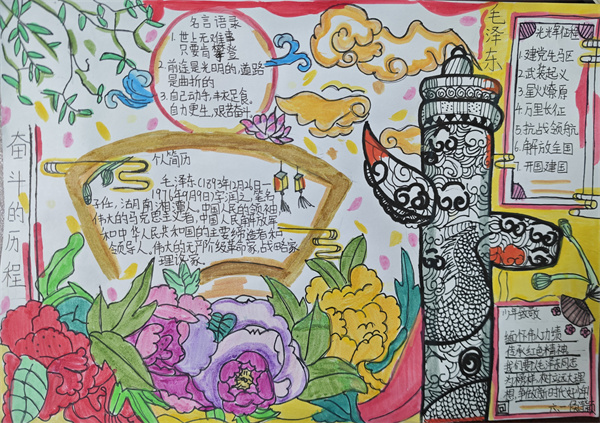 奋斗的历程
名言语录
1.世上无难事
只要肯攀登
2.前途是光明的,道路
是曲折的
3.自己动手,丰衣足食。
自力更生,艰苦奋斗
个人简历
毛泽东(1893年12月26日—
1976年9月9日)字润之,笔名
子任,湖南湘潭人,中国人民的领袖
伟大的马克思主义者,中国人民解放军
和中华人民共和国的主要缔造者和
领导人。伟大的无产阶级革命家、战略家
理论家。
毛泽东
光光军征程
1.建党先马区
2.武装起义
3.星火燎原
4.万里长征
5.抗战领航
6.解放全国
7.开国建国
少年致敬
缅怀伟人功绩
传承红色精神
我们要以毛泽东同志
为榜样,树立远大理
想,争做新时代好少年